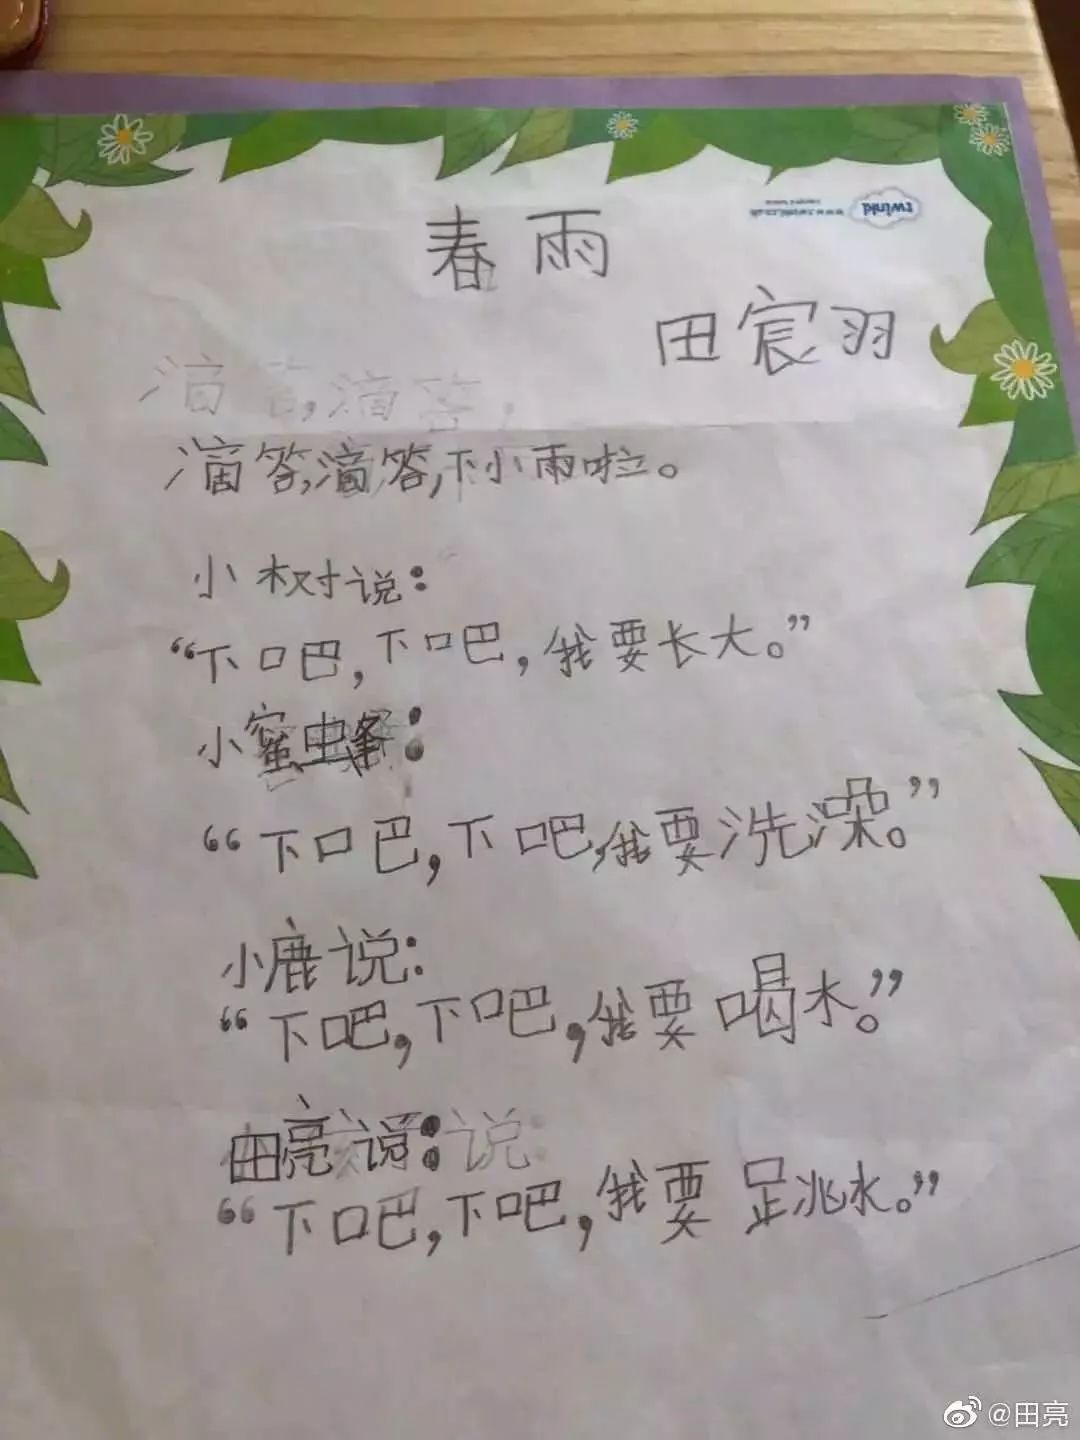 春雨
田宸羽
滴答,滴答,
滴答,滴答,下小雨啦。
小树说:
“下吧,下吧,我要长大。”
小蜜蜂:
“下吧,下吧,我要洗澡。”
小鹿说:
“下吧,下吧,我要喝水。”
田亮说:说:
“下吧,下吧,我要跳水。”
twinkl
www.twinkl.co.uk
@田亮